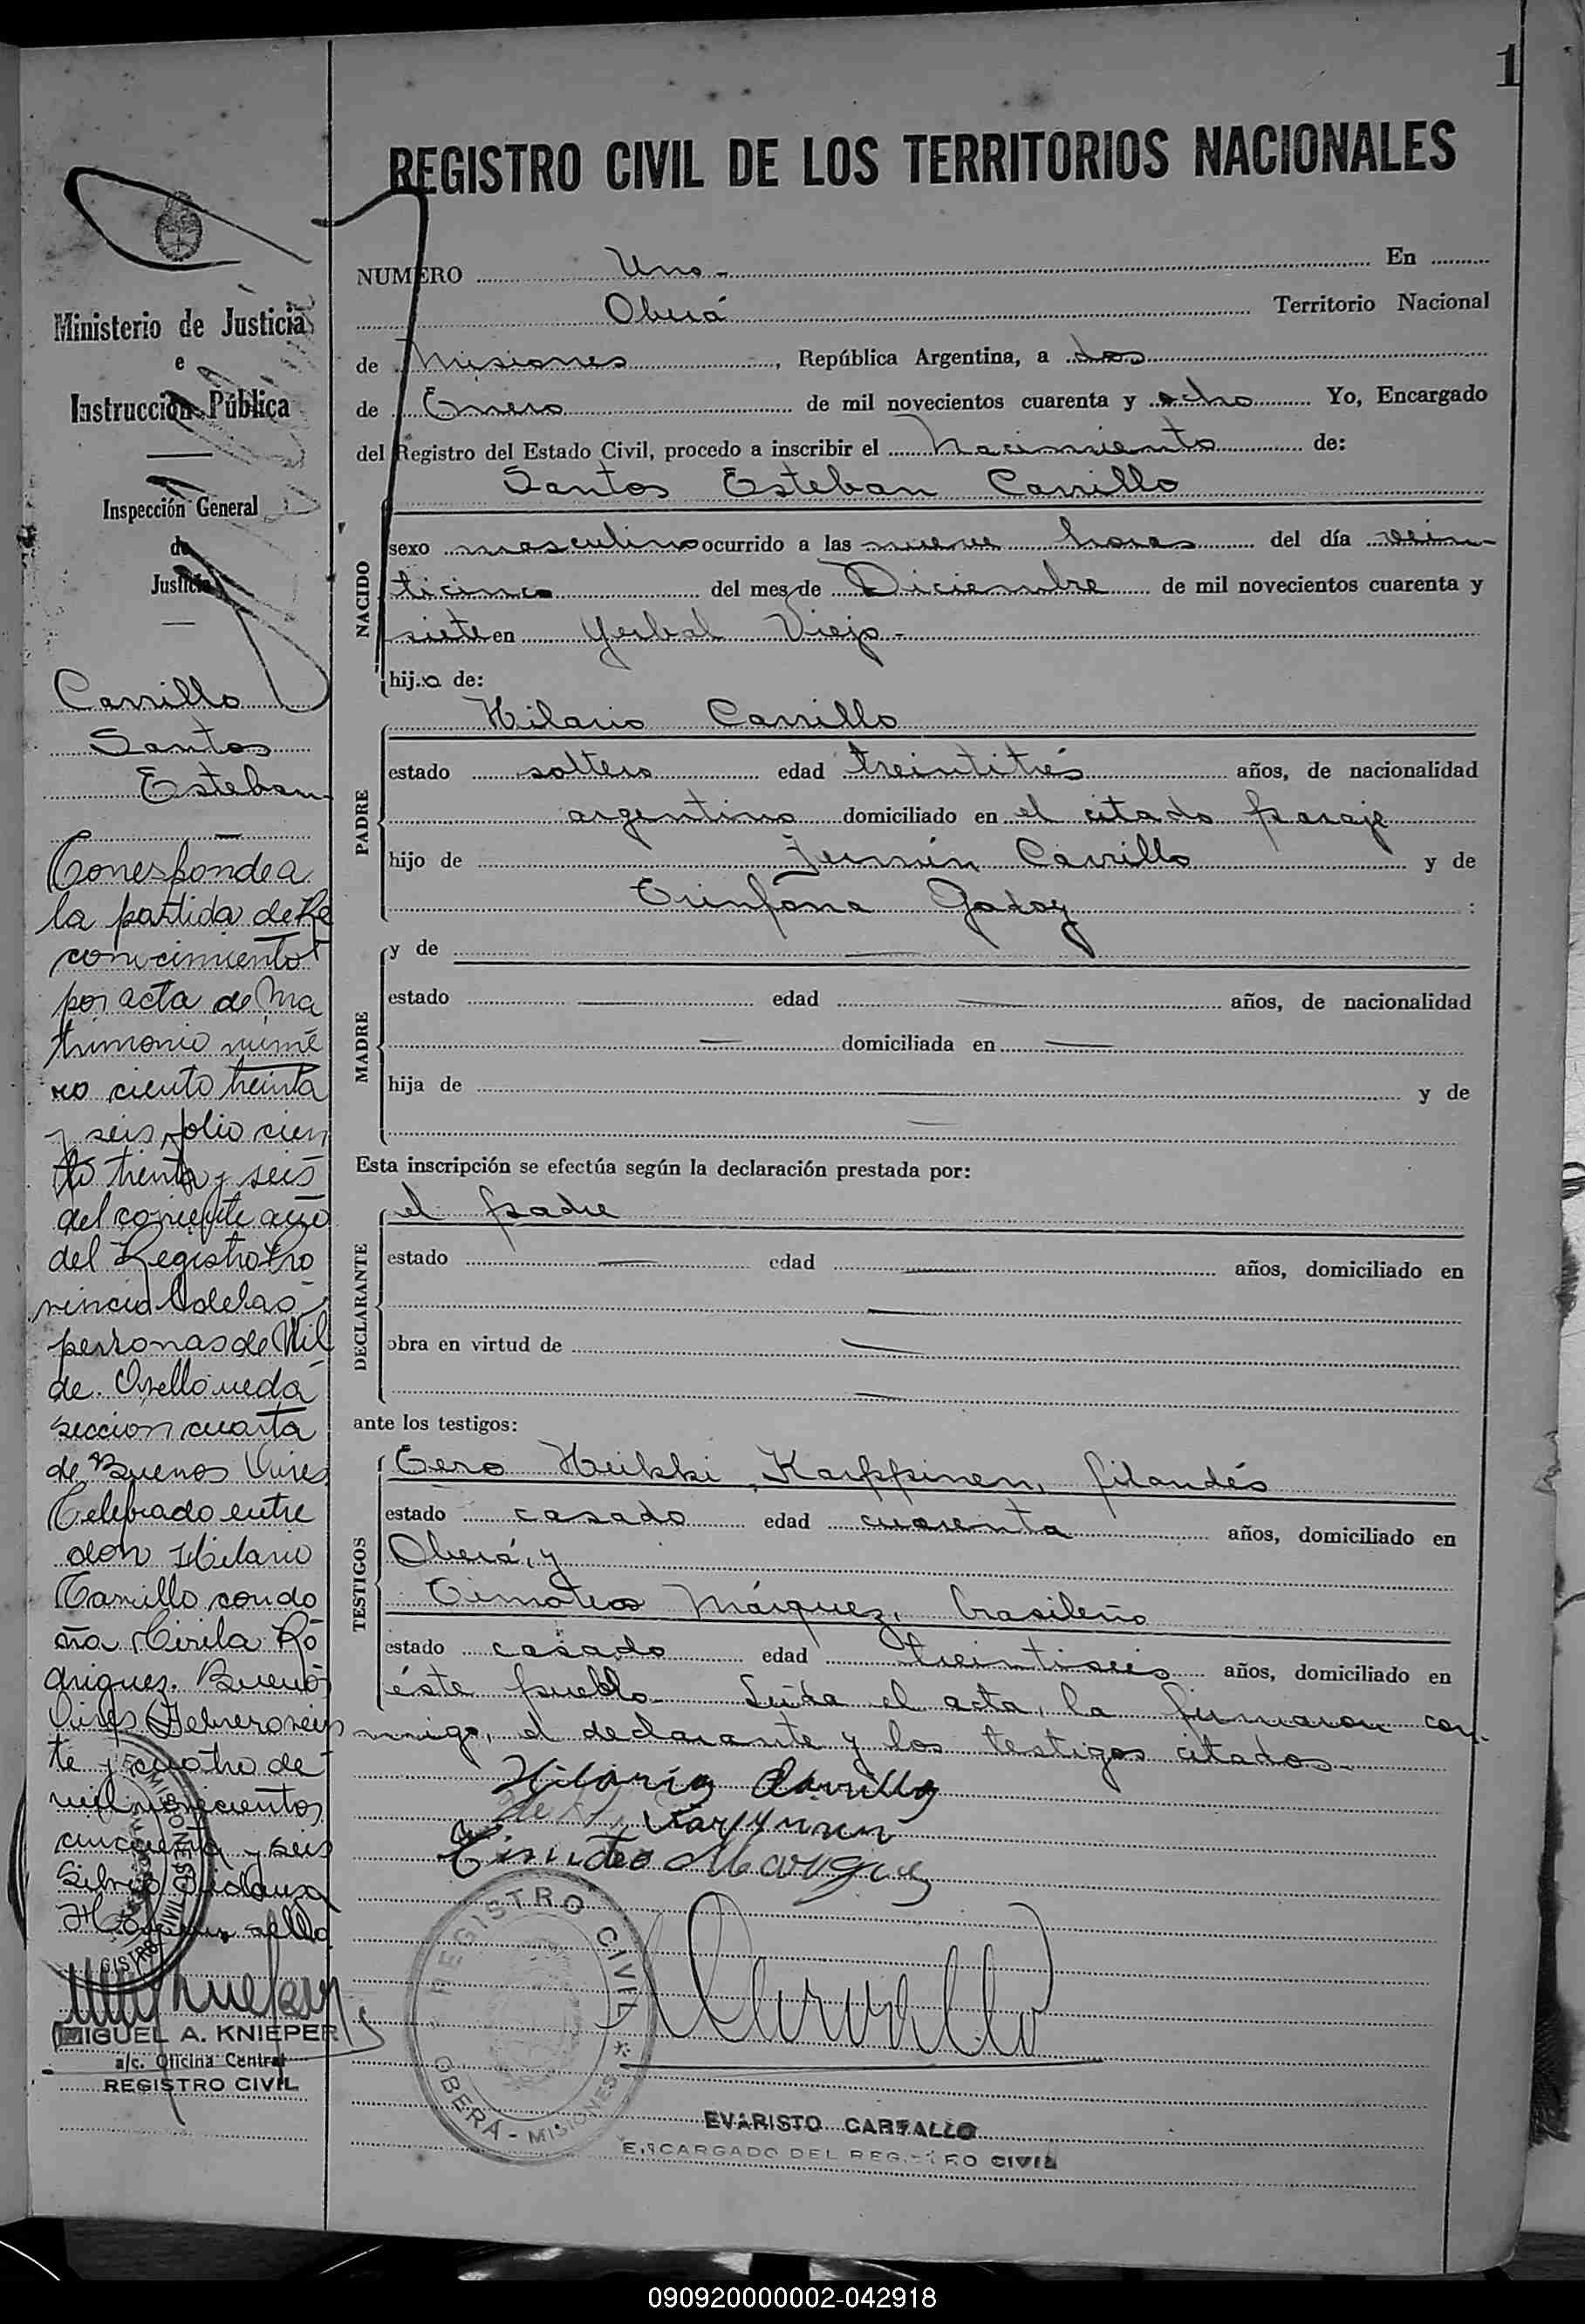 1
REGISTRO CIVIL DE LOS TERRITORIOS NACIONALES
NUMERO Uno - En
Oberá Territorio Nacional
de Misiones, República Argentina, a dos
de Enero de mil novecientos cuarenta y ocho Yo, Encargado
del Registro del Estado Civil, procedo a inscribir el nacimiento de:
Santos Esteban Carrillo
NACIDO
sexo masculino ocurrido a las nueve horas del día vein-
ticinco del mes de Diciembre de mil novecientos cuarenta y
siete en Yerbal Viejo -
hijo de:
Hilario Carrillo
PADRE
estado soltero edad treintitrés años, de nacionalidad
argentino domiciliado en el citado paraje
hijo de Carrillo y de
Godoy
MADRE
y de —
estado — edad — años, de nacionalidad
— domiciliada en —
hija de — y de
—
Esta inscripción se efectúa según la declaración prestada por:
el padre
DECLARANTE
estado — edad — años, domiciliado en
—
obra en virtud de —
—
ante los testigos:
TESTIGOS
Eero Heikki Karppinen, filandés
estado casado edad cuarenta años, domiciliado en
Oberá, y
Timoteo Márquez, brasileño
estado casado edad treintiseis años, domiciliado en
éste pueblo. Leída el acta, la firmaron con-
migo, el declarante y los testigos citados.-
Hilario Carrillo
Karppinen
Timoteo Marques
REGISTRO CIVIL
OBERÁ - MISIONES
EVARISTO CARVALLO
ENCARGADO DEL REGISTRO CIVIL
Ministerio de Justicia
e
Instrucción Pública
Inspección General
de
Justicia
Carrillo
Santos
Esteban
—
Corresponde a
la partida de Re
conocimiento
por acta de Ma
trimonio núme
ro ciento treinta
y seis folio cien
to treinta y seis
del corriente año
del Registro Pro
vincial de las
personas de Wil
de. Avellaneda
sección cuarta
de Buenos Aires
Celebrado entre
don Hilario
Carrillo con do
ña Cirila Ro
driguez. Buenos
Aires Febrero vein
te y cuatro de
mil novecientos
cincuenta y seis
sello
MIGUEL A. KNIEPER
a/c. Oficina Central
REGISTRO CIVIL
090920000002-042918